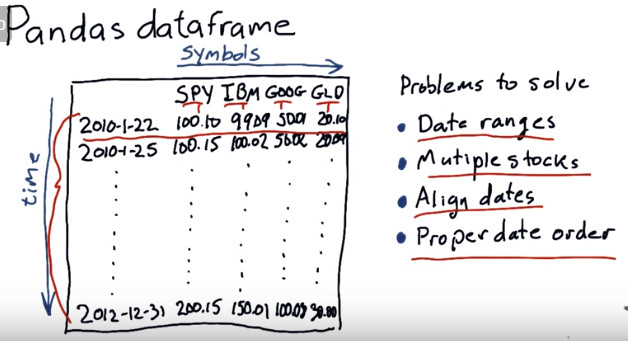 Pandas dataframe
Symbols
time
SPY IBM GOOG GLD
2010-1-22 100.10 99.09 50.01 20.10
2010-1-25 100.15 100.02 50.02 20.09
2012-12-31 200.15 150.01 100.03 30.00
Problems to solve
• Date ranges
• Mutiple stocks
• Align dates
• Proper date order